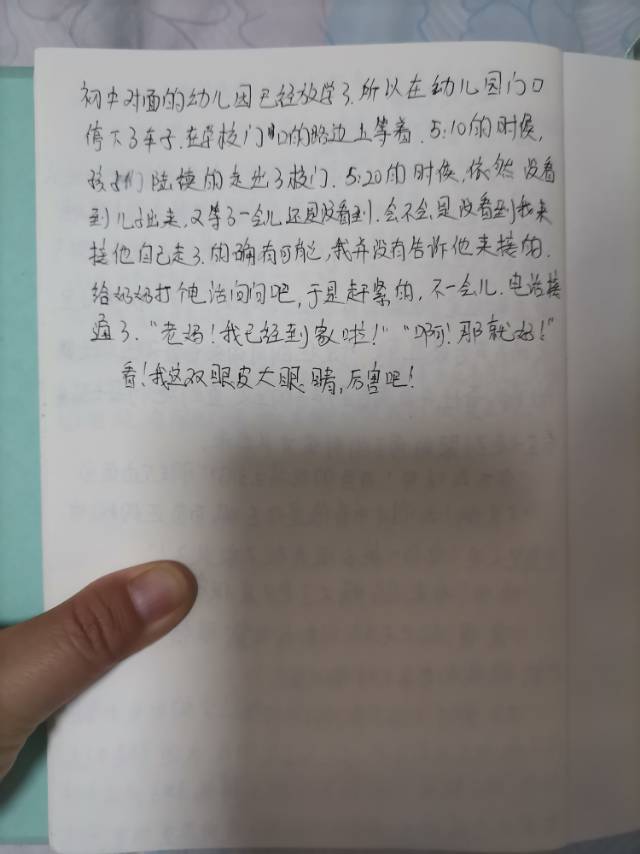 初中对面的幼儿园已经放学了.所以在幼儿园门口
停下了车子.在学校门口的路边上等着.5:10的时候,
孩子们陆续的走出了校门.5:20的时候,依然没看
到儿子出来,又等了一会儿还是没看到.会不会是没看到我来
接他自己走了.的确有可能,我并没有告诉他来接的.
给奶奶打个电话问问吧,于是赶紧的,不一会儿.电话接
通了."老妈!我已经到家啦!""啊!那就好!"
看!我这双眼皮大眼睛,厉害吧!